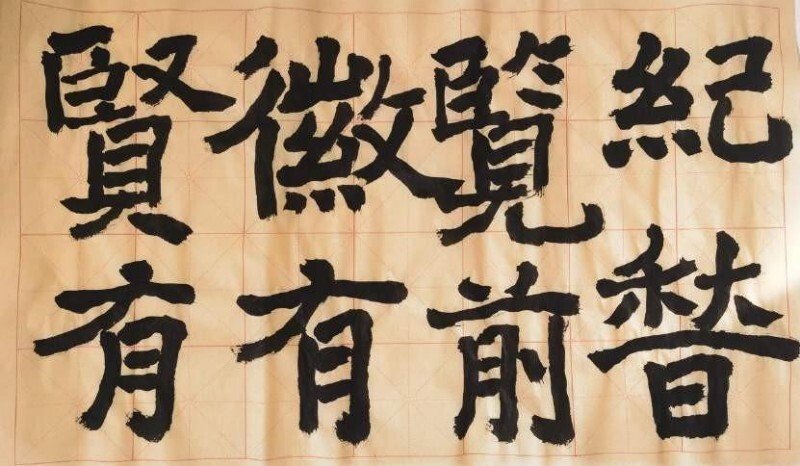 紀
覽前
徽有
賢有